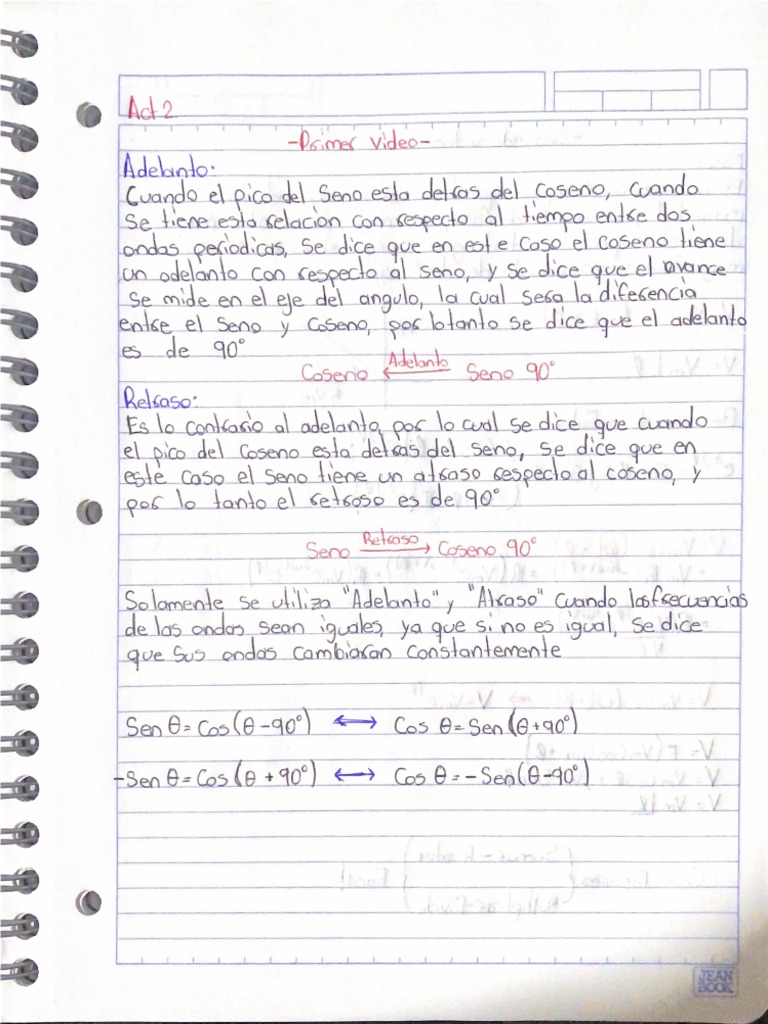 Act 2
-Primer video-
Adelanto:
Cuando el pico del Seno esta detras del coseno, cuando
se tiene esta relación con respecto al tiempo entre dos
ondas periodicas, se dice que en este caso el coseno tiene
un adelanto con respecto al seno, y se dice que el avance
se mide en el eje del angulo, la cual sera la diferencia
entre el Seno y Coseno, por lo tanto se dice que el adelanto
es de 90°
Coseno ← Adelanto Seno 90°
Retraso:
Es lo contrario al adelanto, por lo cual se dice que cuando
el pico del coseno esta detrás del seno, se dice que en
este caso el seno tiene un atraso respecto al coseno, y
por lo tanto el retraso es de 90°
Seno Retraso → Coseno 90°
Solamente se utiliza "Adelanto" y "Atraso" cuando las frecuencias
de las ondas sean iguales, ya que si no es igual, se dice
que sus ondas cambiaran constantemente
Sen θ = Cos(θ - 90°) ↔ Cos θ = Sen(θ + 90°)
-Sen θ = Cos(θ + 90°) ↔ Cos θ = -Sen(θ - 90°)
JEAN
BOOK